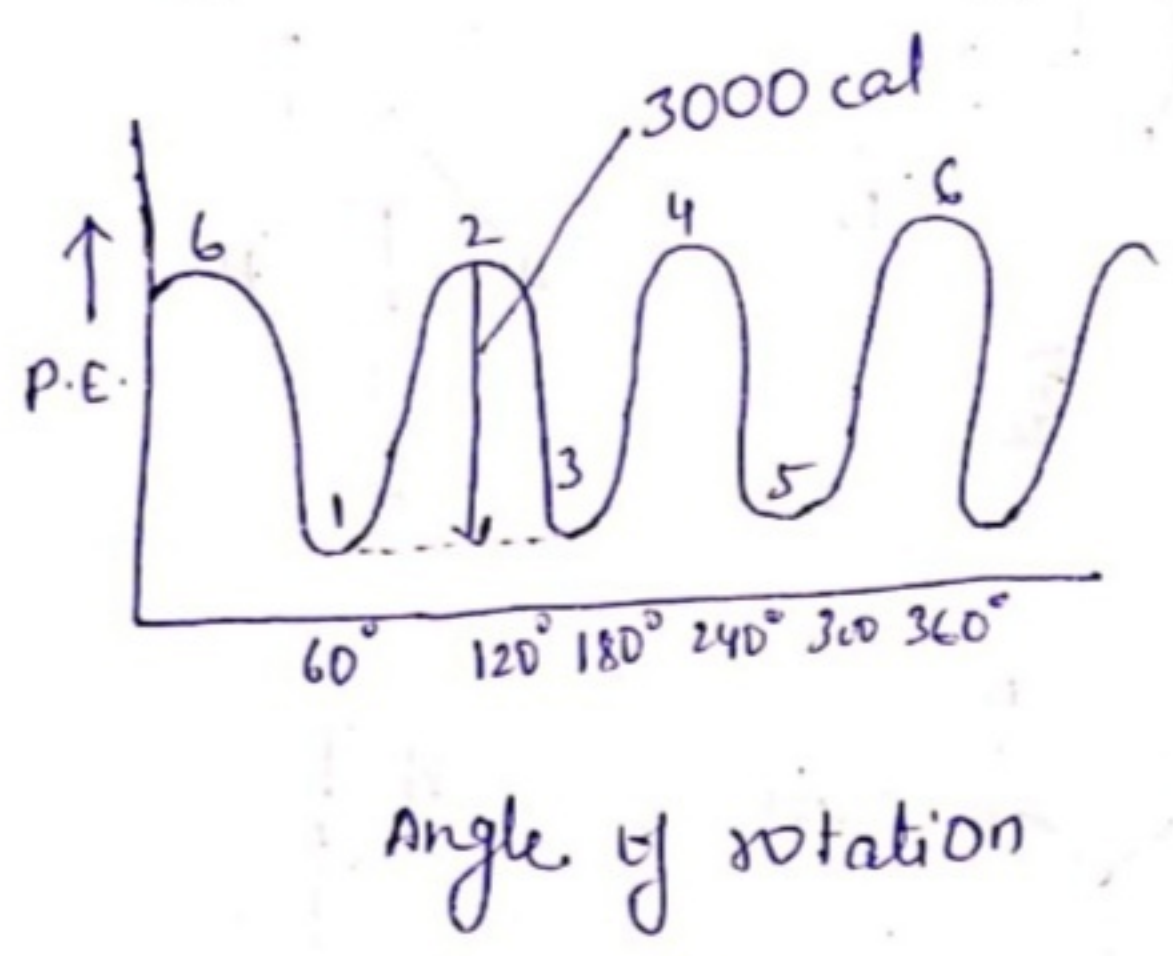 3000 cal
6
2
4
6
P.E.
1
3
5
60° 120° 180° 240° 300 360°
Angle of rotation